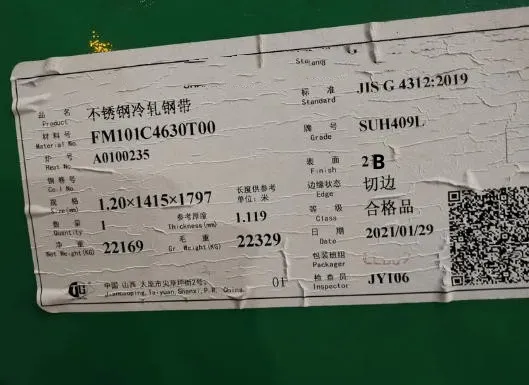 品 名 不锈钢冷轧钢带 标 准 JIS G 4312:2019
Product Standard
材料号 FM101C4630T00 牌号 SUH409L
Material No. Grade
炉 号 A0100235 表 面 2B
Heat No. Finish
钢卷号 边缘状态 切边
Coil No. Edge
规 格 1.20×1415×1797 长度供参考 等 级 合格品
Size(mm) 单位:米 Class
数 量 1 参考厚度 1.119 日 期 2021/01/29
Quantity Thickness(mm) Date
净 重 22169 毛 重 22329 包装班组
Net Weight(KG) Gr. Weight(KG) Packager
中国 山西 太原市尖草坪街2号 01 检查员 JY106
Jiancaoping,Taiyuan,Shanxi,P.R. China. Inspector